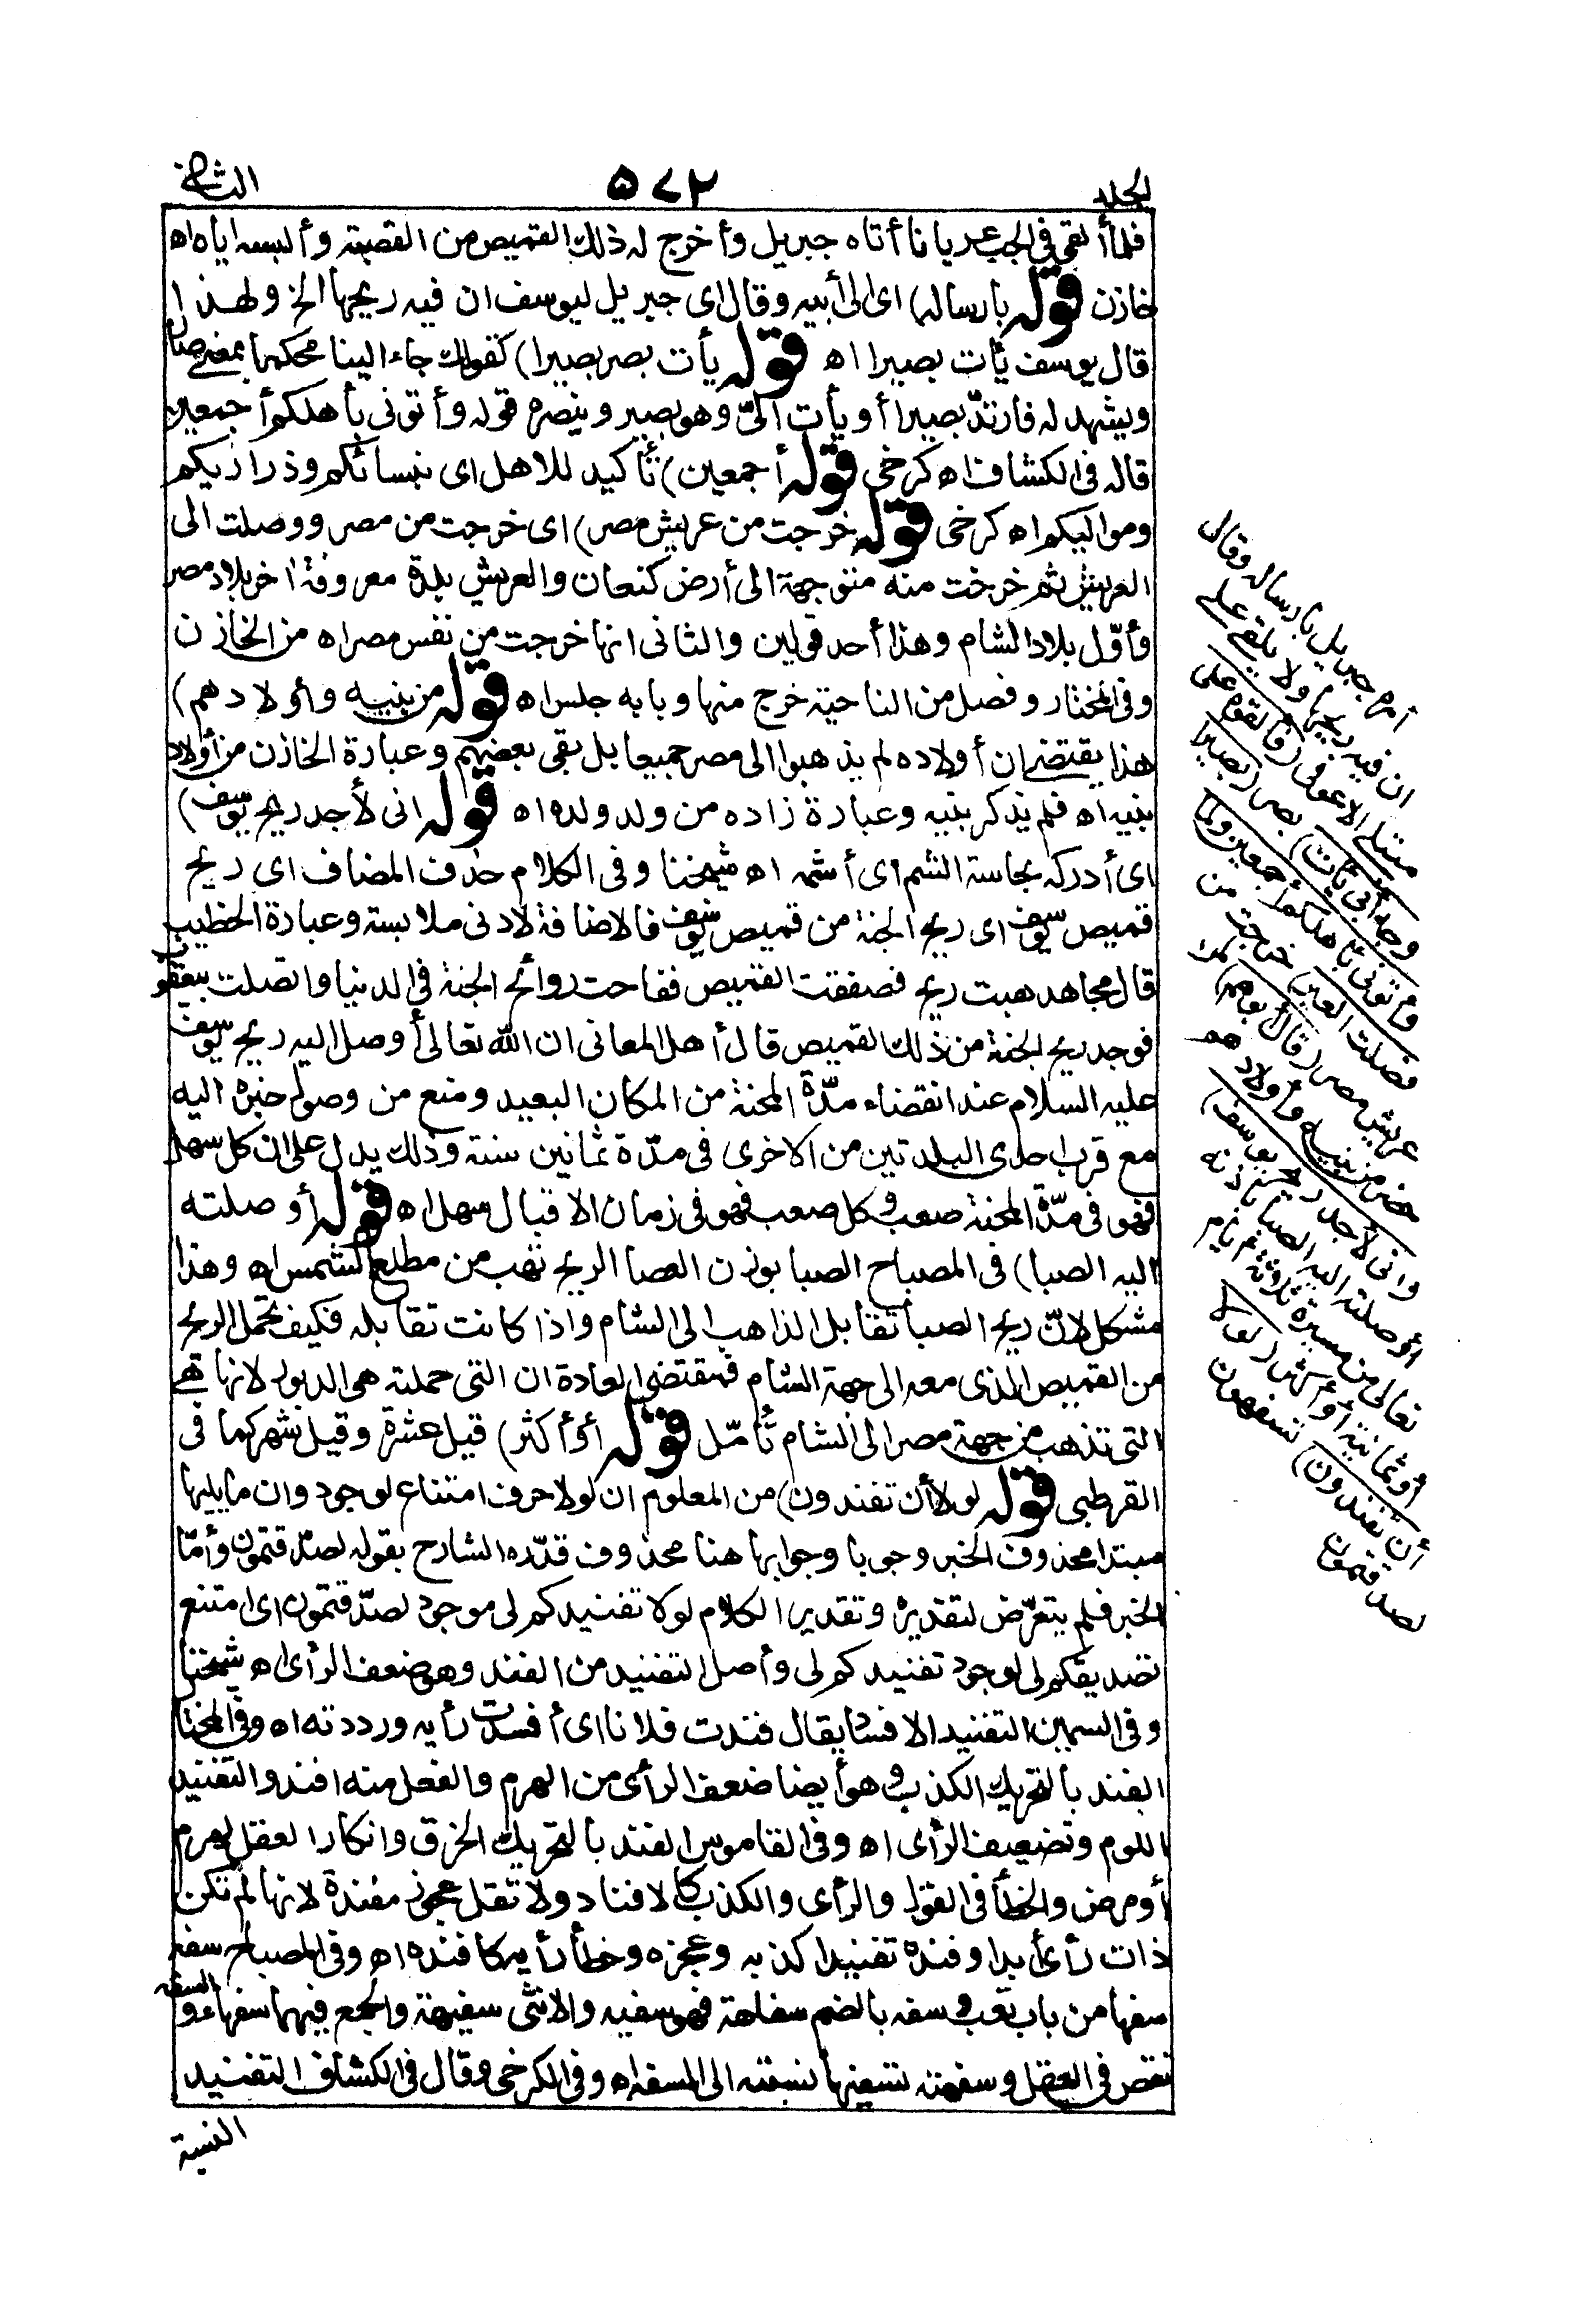 الجلد ٥٧٢ الثانى
فلما ألقى فى الجب عريانا أتاه جبريل وأخرج له ذلك القميص من القصبة وألبسه اياه اه
خازن قوله بارساله) اى الى أبيه وقال اى جبريل ليوسف ان فيه ريحها الخ ولهذا
قال يوسف يأت بصيرا اه قوله يأت بصر بصيرا) كقولك جاء البنا محكما بمعنى صار
ويشهد له فارتدّ بصيرا أو يأت الىّ وهو بصير وينصره قوله وأتونى بأهلكم أجمعين
قاله فى الكشاف اه كرخى قوله أجمعين) تأكيد للاهل اى نسائكم وذراريكم
ومواليكم اه كرخى قوله خرجت من عريش مصر) اى خرجت من مصر ووصلت الى
العريش ثم خرجت منه متوجهة الى أرض كنعان والعريش بلدة معروفة اخر بلاد مصر
وأوّل بلاد الشام وهذا أحد قولين والثانى انها خرجت من نفس مصر اه من الخازن
وفى المختار وفصل من الناحية خرج منها وبابه جلس اه قوله من بنيه وأولادهم)
هذا يقتضى ان أولاده لم يذهبوا الى مصر جميعا بل بقى بعضهم وعبارة الخازن من أولاد
بنيه اه فلم يذكر بنيه وعبارة زاده من ولد ولده اه قوله انى لأجد ريح يوسف)
اى أدركه بحاسة الشم اى أشمه اه شيخنا وفى الكلام حذف المضاف اى ريح
قميص يوسف اى ريح الجنة من قميص يوسف فالاضافة لادنى ملابسة وعبارة الخطيب
قال مجاهد هبت ريح فصفقت القميص ففاحت روائح الجنة فى الدنيا واتصلت بيعقوب
فوجد ريح الجنة من ذلك القميص قال أهل المعانى ان الله تعالى أوصل اليه ريح يوسف
عليه السلام عند انقضاء مدّة المحنة من المكان البعيد ومنع من وصول خبره اليه
مع قرب احدى البلدتين من الاخرى فى مدّة ثمانين سنة وذلك يدل على ان كل سهل
فهو فى مدّة المحنة صعب وكل صعب فهو فى زمان الاقبال سهل اه قوله أوصلته
اليه الصبا) فى المصباح الصبا بوزن العصا الريح تهب من مطلع الشمس اه وهذا
مشكل لانّ ريح الصبا تقابل الذاهب الى الشام واذا كانت تقابله فكيف تحمل الريح
من القميص الذى معه الى جهة الشام فمقتضى العادة ان التى حملته هى الدبور لانها هى
التى تذهب من جهة مصر الى الشام تأمّل قوله أو أكثر) قيل عشرة وقيل شهر كما فى
القرطبى قوله لولا أن تفندون) من المعلوم ان لولا حرف امتناع لوجود وان ما يليها
مبتدا محذوف الخبر وجوبا وجوابها هنا محذوف قدّره الشارح بقوله لصدّقتمون وأمّا
الخبر فلم يتعرّض لتقديره وتقدير الكلام لولا تفنيدكم لى موجود لصدّقتمون اى امتنع
تصديقكم لى لوجود تفنيدكم لى وأصل التفنيد من الفند وهو ضعف الرأى اه شيخنا
وفى السمين التفنيد الافساد يقال فندت فلانا اى أفسدت رأيه ورددته اه وفى المختار
الفند بالتحريك الكذب وهو أيضا ضعف الرأى من الهرم والفعل منه افند والتفنيد
اللوم وتضعيف الرأى اه وفى القاموس الفند بالتحريك الخرق وانكار العقل لهرم
أو مرض والخطأ فى القول والرأى والكذب كالافناد ولا تقل عجوز مفندة لانها لم تكن
ذات رأى أبدا وفنده تفنيدا كذبه وعجزه وخطأ رأيه كافنده اه وفى المصباح سفه
سفها من باب تعب وسفه بالضم سفاهة فهو سفيه والانثى سفيهة والجمع فيهما سفهاء والسفه
نقص فى العقل وسفهته تسفيها نسبته الى السفه اه وفى الكرخى وقال فى الكشاف التفنيد
النسبة
أمره جبريل بارساله وقال
ان فيه ريحها ولا يلقى على
مبتلى الا عوفى (فالقوه على
وجه أبى يأت) بصر (بصيرا
وأتونى بأهلكم أجمعين ولما
فصلت العير) خرجت من
عريش مصر (قال أبوهم) لمن
حضر من بنيه وأولادهم
(انى لأجد ريح يوسف)
أوصلته اليه الصبا باذنه
تعالى من مسيرة ثلاثة أيام
أو ثمانية أو أكثر (لولا
أن تفندون) تسفهون
لصدقتمون